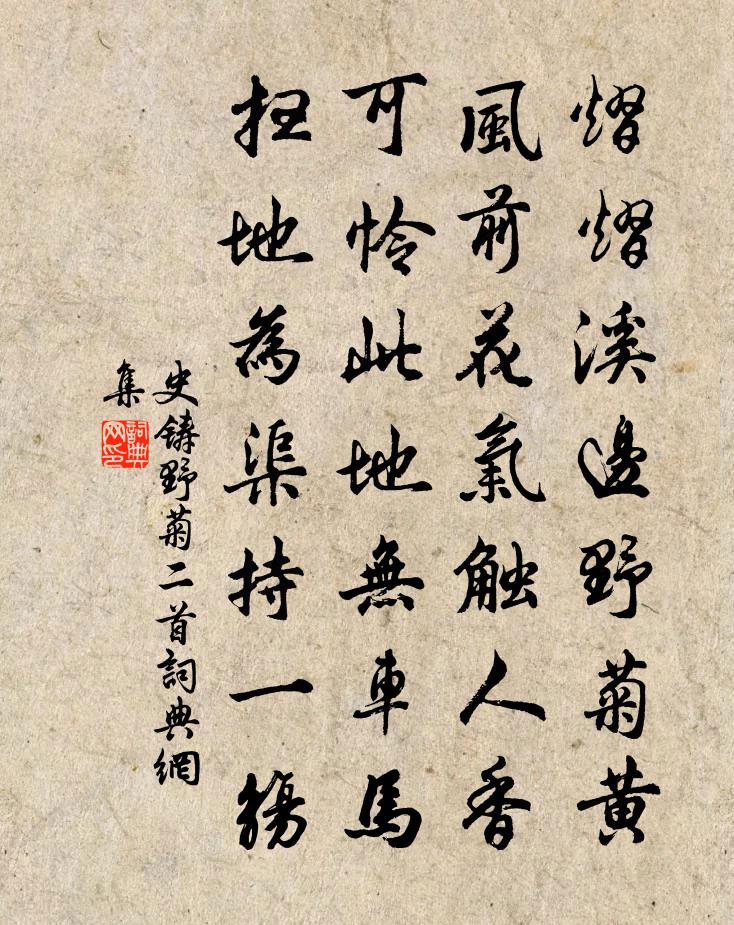 熠熠溪邊野菊黄
風前花氣触人香
可怜此地無車馬
扫地為渠持一觴
史鑄野菊二首詞典網
集
詞典网印